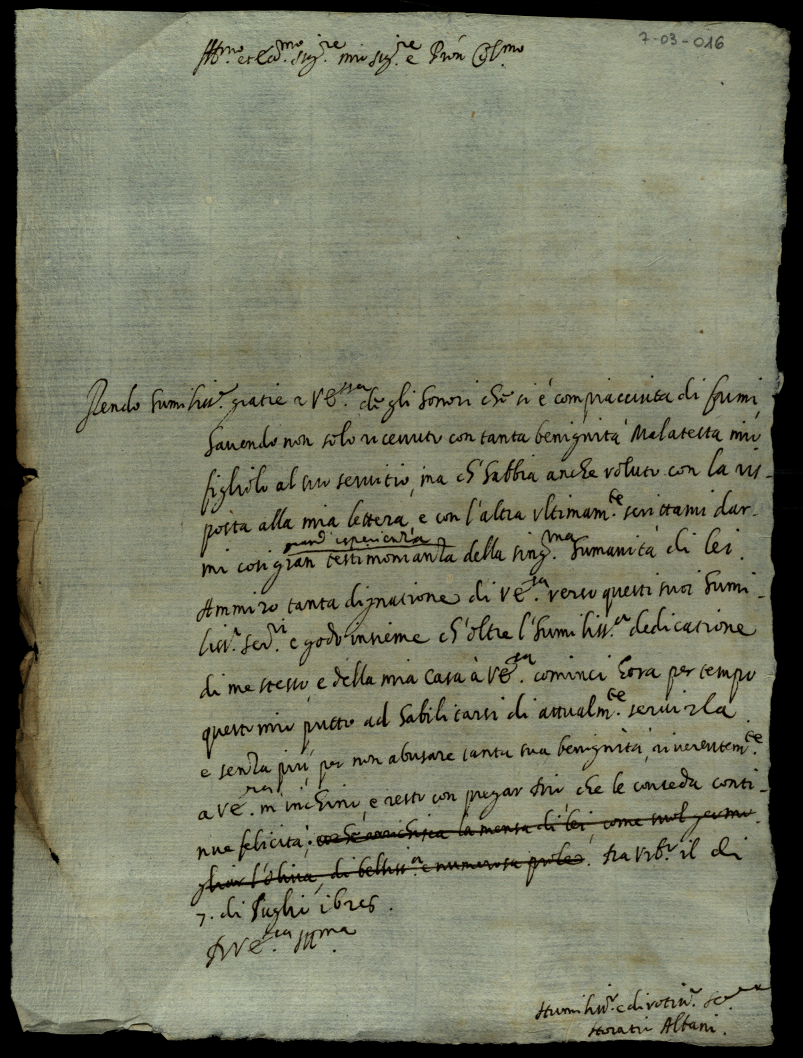 7-03-016
Ill.mo et Ecc.mo Sig.re mio Sig.re e Pròn Col.mo
Rendo humiliss.e gratie a V E.ssa de gli honori che si è compiacciuta di farmi
havendo non solo ricevuto con tanta benignità Malatesta mio
figliolo al suo servitio, ma ch'habbia anche voluto con la ris-
posta alla mia lettera, e con l'altra ultimam.te scrittami dar-
grand'esperienza
mi così gran testimonianza della sing.ma humanità di lei.
Ammiro tanta dignatione di V E.za verso questi suoi humi-
liss.i ser.ri e godo insieme ch'oltre l'humiliss.a dedicatione
di me stesso e della mia Casa à V E.za cominci hora per tempo
questo mio putto ad habilitarsi di attualm.te servirla
e senza più per non abusare tanta sua benignità, riverentem.te
a V E.za m'inchino, e resto con pregar Dio che le conceda conti-
nue felicità, la mensa di lei, come suol germo
gliar l'oliva di belliss.a e numerosa prole. Da Urb.o il di
7. di Luglio
Di V E.za Ill.ma
Humiliss.o e divotiss.o Se.re
Horatio Albani.